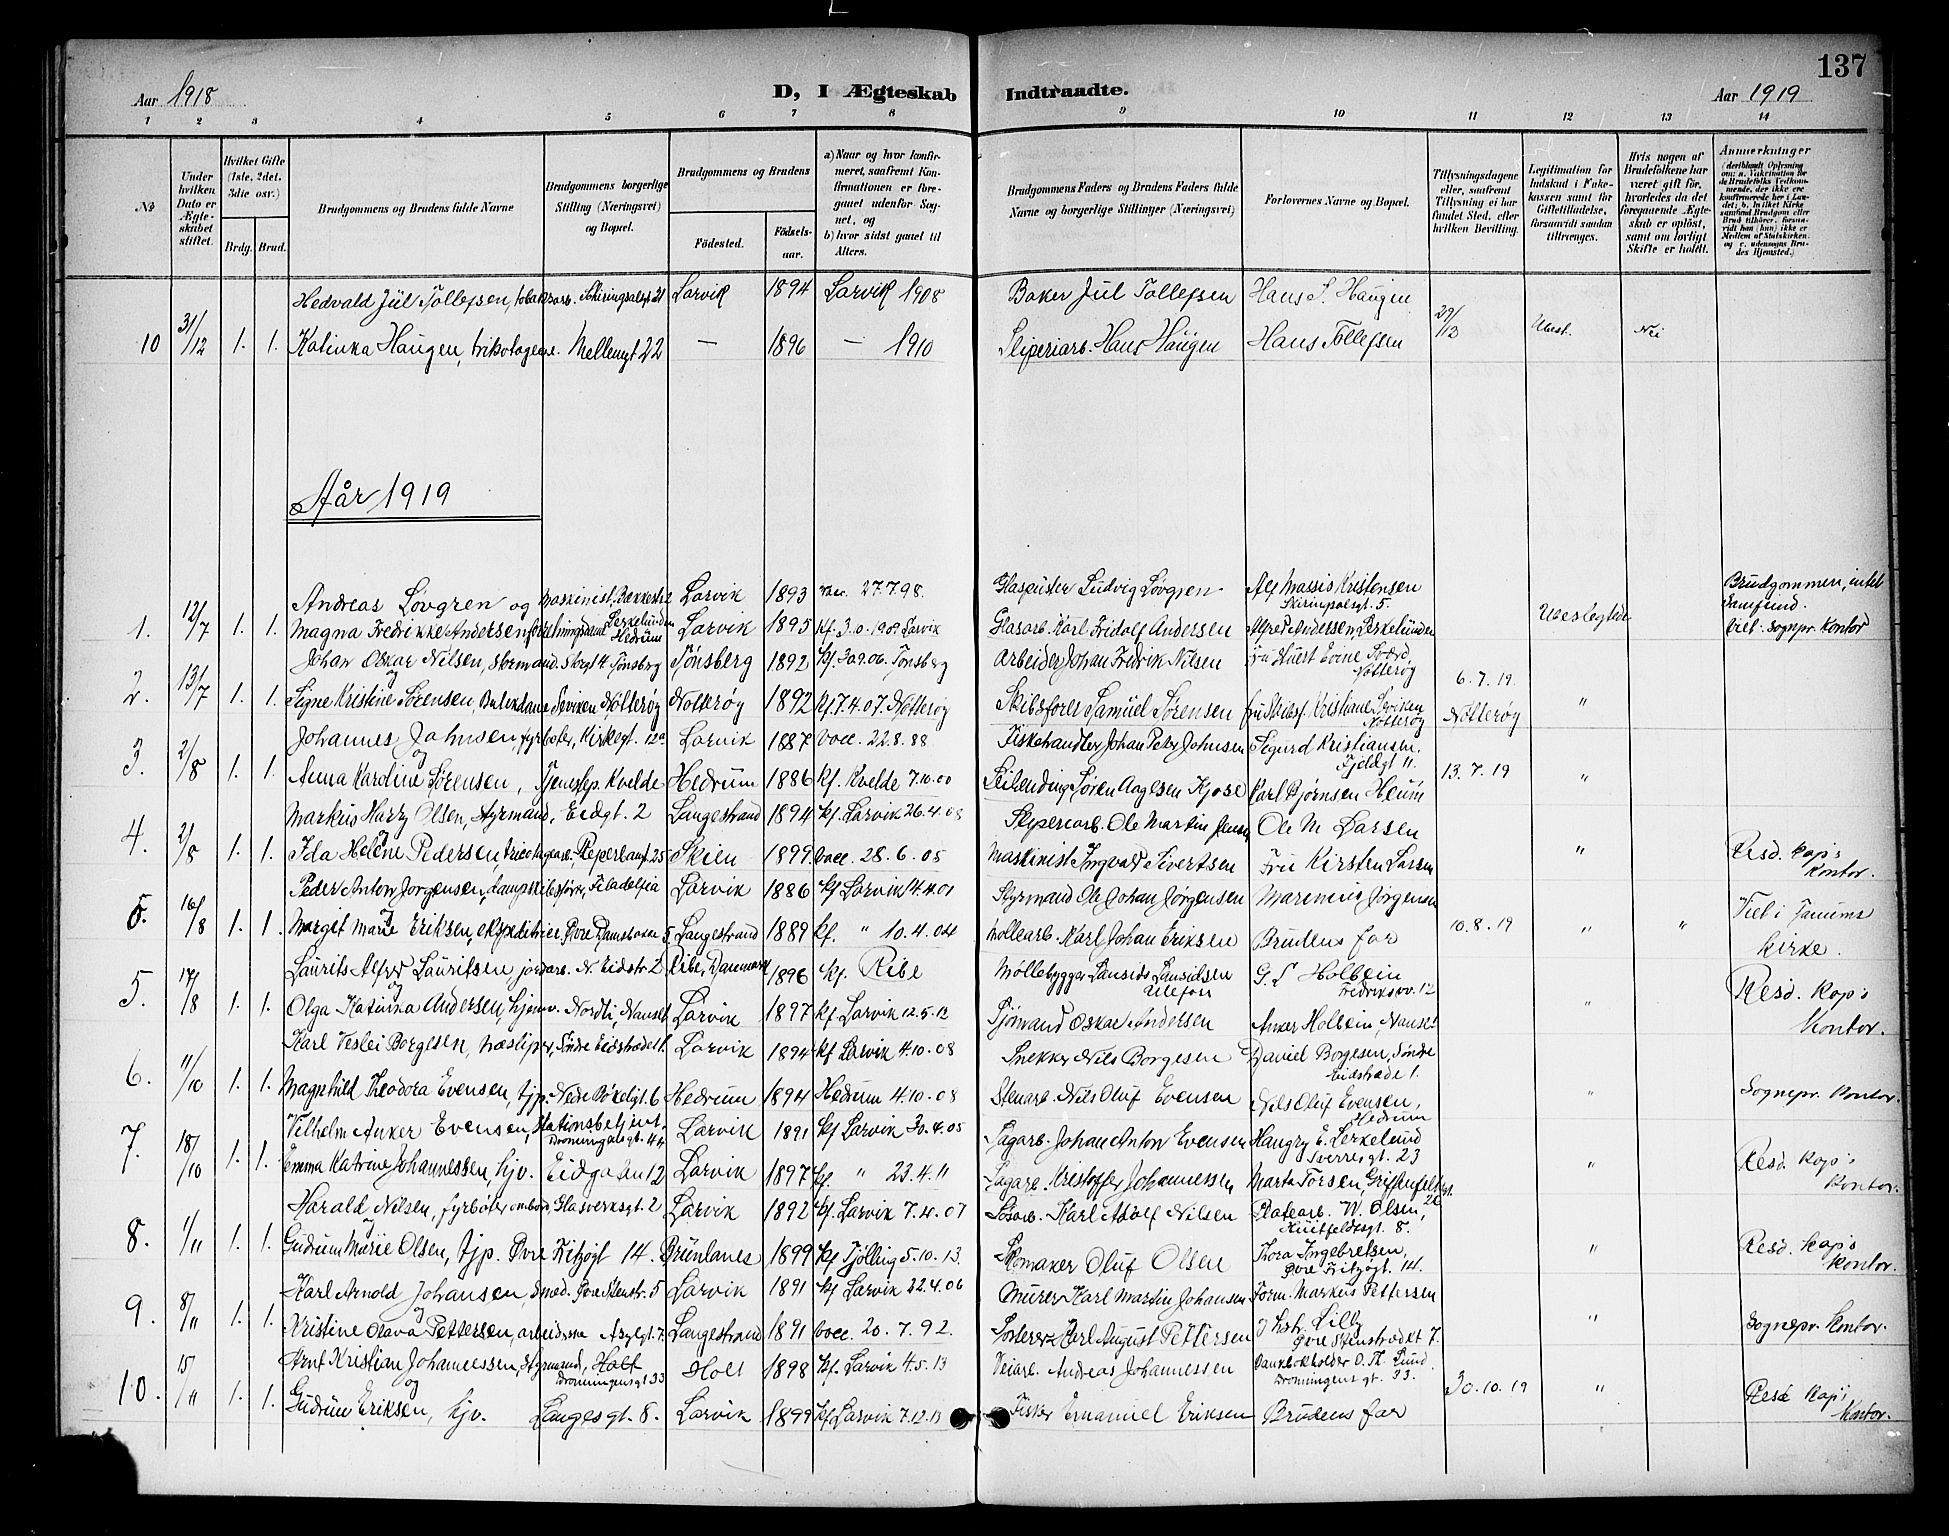 137
Aar 1918 D, I Ægteskab Indtraadte. Aar 1919
1 2 3 4 5 6 7 8 9 10 11 12 13 14
№
Under hvilken Dato er Ægteskabet stiftet.
Hvilket Gifte (1ste, 2det, 3die osv.)
Brdg. Brud.
Brudgommens og Brudens fulde Navne
Brudgommens borgerlige Stilling (Næringsvei) og Bopæl.
Brudgommens og Brudens
Fødested. Fødselsaar.
a) Naar og hvor konfirmeret, saafremt Konfirmationen er foregaaet udenfor Sognet, og
b) hvor sidst gaaet til Alters.
Brudgommens Faders og Brudens Faders fulde Navne og borgerlige Stillinger (Næringsvei)
Forlovernes Navne og Bopæl.
Tillysningsdagene eller, saafremt Tillysning ei har fundet Sted, efter hvilken Bevilling.
Legitimation for Indskud i Enkekassen samt for Giftetilladelse, forsaavidt saadan tiltrænges.
Hvis nogen af Brudefolkene har været gift før, hvorledes da det foregaaende Ægteskab er opløst, samt om lovligt Skifte er holdt.
Anmerkninger
Hedvald Jül Tollefsen, Skiringsalsgt 21 Larvik 1894 Larvik 1908 Baker Jul Tollefsen Hans S. Haugen
10 31/12 1. 1. Katinka Haugen, Mellemgt 22 — 1896 — 1910 Sliperiarb. Hans Haugen Hans Tollefsen 29/12 Nei
År 1919
Andreas Lövgren og Maskinist, Larvik 1893 vac. 27.7.98. Glaspuster Ludvig Lövgren Alf Massis Kristensen Skiringsalsgt. 5. Brudgommen, intet Samfund.
1. 12/7 1. 1. Magna Fredrikke Andersen Hedrum Larvik 1895 kf. 3.0.1909 Larvik Glasarb. Karl Fridolf Andersen Alfred Andersen, Lerkelunden Viet: sognpr. kontor
Johan Oskar Nilsen, Tønsberg Tønsberg 1892 kf. 30.9.06. Tønsberg Arbeider Johan Fredrik Nilsen Nøtterøy
og
2. 13/7 1. 1. Signe Kristine Sørensen, Nøtterøy Nøtterøy 1892 kf. 7.4.07. Nøtterøy Skibsfører Samüel Sørensen Nøtterøy 6.7.19. Nøtterøy "
Johannes Johnsen, fyrbøter, Kirkegt. 12a Larvik 1887 vacc. 22.8.88 Fiskehandler Johan Petr Johnsen Sigurd Kristiansen. Fjeldgt 11.
og
3. 2/8 1. 1. Anna Karoline Sørensen, Kvelde Hedrum 1886 kf. Kvelde 7.10.00 Søren Aagesen Kjose Karl Bjørnsen Heum 13.7.19 "
Markus Harry Olsen, styrmand, Eidgt. 2 Langestrand 1894 kf. Larvik 26.4.08 Sliperiarb. Ole Martin Ole M Larsen
4. 2/8 1. 1. Ida Helene Pedersen, 25 Skien 1899 vacc. 28.6.05 Maskinist Ingvald Sivertsen Fru Kirsten Larsen " Resd. kap's Kontor.
Peder Anton Jorgensen, Filadelfia Larvik 1886 kf Larvik 14.4.01 Styrmand Ole Johan Jørgensen Jørgensen
5. 16/8 1. 1. Margit Marie Eriksen, Langestrand 1889 kf. " 10.4.04 Møllearb. Karl Johan Eriksen Brudens far 10.8.19 " " Viet i Tanums kirke.
Laurits Alfred Lauritsen N. Eidstr 2 Ribe, Danmark 1896 kf. Ribe Møllebygger G. L Holbein Fredriksv. 12
og
5. 17/8 1. 1. Olga Katinka Andersen, hjemv. Nordli, Nanset Larvik 1897 kf. Larvik 12.5.12 Sjømand Oskar Andersen Anker Holbein, Nanset " Resd. Kap's Kontor.
Karl Veslei Borgesen, træsliper, Søndre Eidstræde 1. Larvik 1894 kf Larvik 4.10.08 Snekker Nils Borgesen David Borgesen, Søndre Eidstræde 1.
6. 11/10 1. 1. Magnhild Theodora Evensen, tjp. Nedre Bøkeligt. 6 Hedrum 1894 Hedrum 4.10.08 Stenarb. Nils Oluf Evensen Nils Oluf Evensen, Hedrum " Sognepr. kontor.
Vilhelm Anker Evensen, Stationsbetjent. Dronningensgt. 44 Larvik 1891 kf Larvik 30.4.05 Sagarb. Johan Anton Evensen Haugry E. Lerkelund Sverresgt. 23
7. 18/10 1. 1. Emma Katrine Johannessen, hjv. Eidgaten 12 Larvik 1897 kf. " 23.4.11 Sagarb. Kristoffer Johannessen Marta Torsen, " Resd. kap's kontor.
Harald Nilsen, fyrbøter ombord, Glasverksgt. 2 Larvik 1892 kf. Larvik 7.4.07 Karl Adolf Nilsen W. Olsen, Huitfeldtsgt. 8.
og
8. 1/11 1. 1. Gudrum Marie Olsen, tjp. Øvre Fritzøgt 14. Brunlanes 1899 kf Tjølling 5.10.13. Skomaker Oluf Olsen Thora Ingebretsen, Øvre Fritzøgt. 14. " Resd. kap's kontor.
Karl Arnold Johansen, Smed. Øvre Stenstr. 5 Larvik 1891 kf Larvik 22.4.06 Murer Karl Martin Johansen Form. Markus Pettersen
og
9. 8/11 1. 1. Kristine Olava Pettersen, Asylgt. 7. Langestrand 1891 vacc. 20.7.92. Karl August Pettersen Øvre Stenstrædet 7. " Sognepr. kontor.
Arnt Kristian Johannessen, styrmand, Holt Dronningensgt 33 Holt 1898 kf. Larvik 4.5.13 Veiarb. Andreas Johannessen Bankbokholder O. Th. Lund. Dronningens gt. 33.
og
10. 15/11 1. 1. Gudrun Eriksen, hjv. Langesgt. 8. Larvik 1899 kf Larvik 7.12.13 Fisker Emanuel Eriksen Brudens far 30.10.19 " Resd Kap's Kontor.